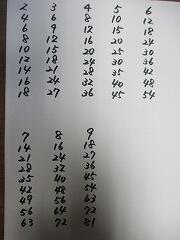 2 3 4 5 6
4 6 8 10 12
6 9 12 15 18
8 12 16 20 24
10 15 20 25 30
12 18 24 30 36
14 21 28 35 42
16 24 32 40 48
18 27 36 45 54
7 8 9
14 16 18
21 24 27
28 32 36
35 40 45
42 48 54
49 56 63
56 64 72
63 72 81